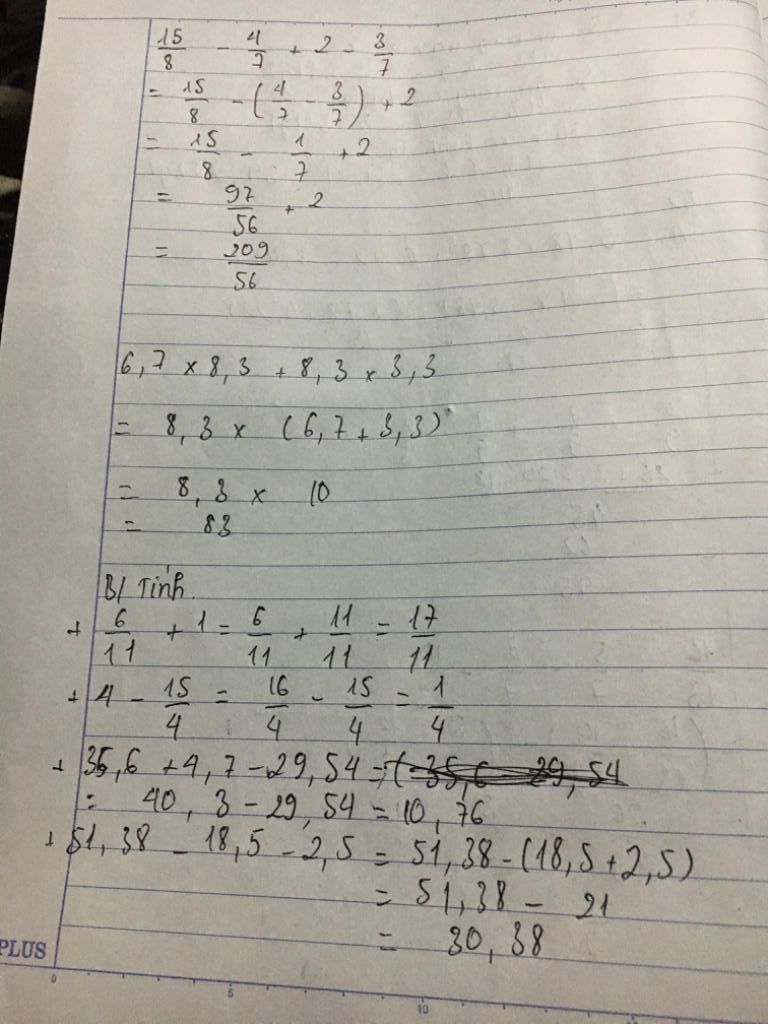 15/8 - 4/7 + 2 - 3/7
= 15/8 - (4/7 - 3/7) + 2
= 15/8 - 1/7 + 2
= 97/56 + 2
= 209/56
6,7 × 8,3 + 8,3 × 3,3
= 8,3 × (6,7 + 3,3)
= 8,3 × 10
= 83
B/ Tính
+ 6/11 + 1 = 6/11 + 11/11 = 17/11
+ 4 - 15/4 = 16/4 - 15/4 = 1/4
+ 35,6 + 4,7 - 29,54 = (35,6 - 29,54
= 40,3 - 29,54 = 10,76
+ 51,38 - 18,5 - 2,5 = 51,38 - (18,5 + 2,5)
= 51,38 - 21
= 30,38
PLUS
0 5 10